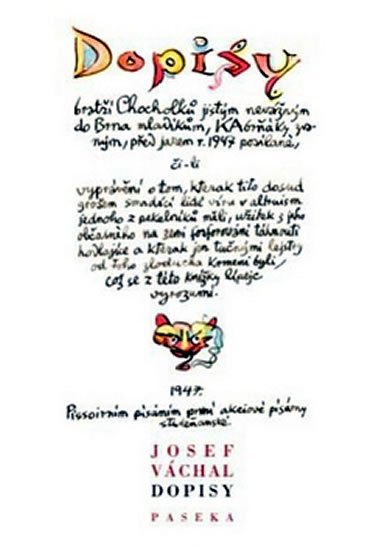 Dopisy
bratří Chocholků jistým nevážným
do Brna mladíkům, KAbrňáky zva-
ným, před jarem r. 1947 posílané,
či-li
vyprávění o tom, kterak tito dosud
grošem smradící lidé víru v altruism
jednoho z pekelníků měli, užitek z jeho
občasného na zemi fosforování táhnouti
hodlajíce a kterak jen tučnými lejstry
od toho zloducha krmeni byli,
což se z této knížky lépeje
vyrozumí.
1947.
Pissoirním písáním první akciové písárny
studeňanské
JOSEF
VÁCHAL
DOPISY
PASEKA